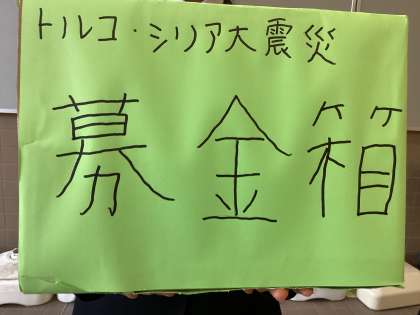 トルコ・シリア大震災
募金箱